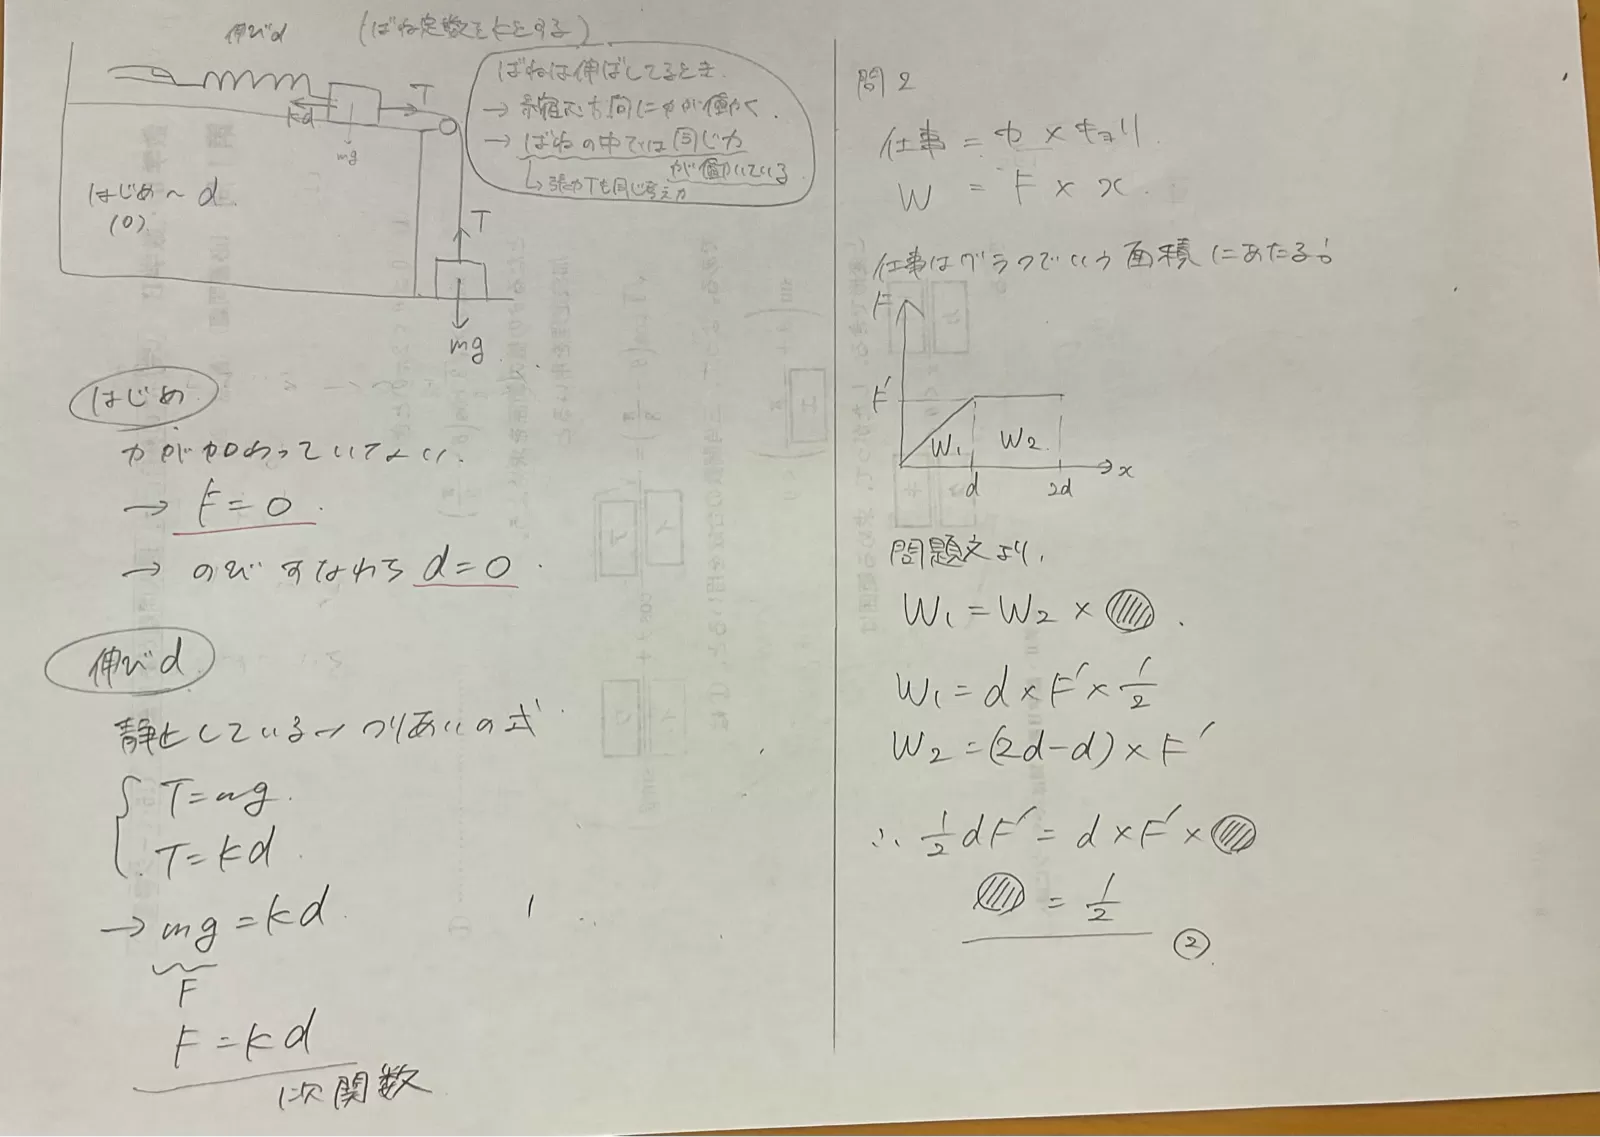 伸び d (ばね定数をkとする)
ばねは伸ばしてるとき
→ 縮む方向に力が働く.
→ ばねの中では同じ力
が働いている
↳ 張力Tも同じ考え方
T
kd
mg
はじめ〜d
(0)
T
mg
はじめ
力が加わっていない.
→ F=0.
→ のび すなわち d=0.
伸び d
静止している→つりあいの式
T=mg.
T=kd.
→ mg=kd.
F
F=kd
1次関数
問2
仕事 = 力 × キョリ.
W = F × x.
仕事はグラフでいう面積にあたる!
F
F'
W₁ W₂
d 2d x
問題文より,
W₁=W₂×
W₁=d×F'×1/2
W₂=(2d-d)×F'
∴ 1/2dF'=d×F'×
=1/2
②